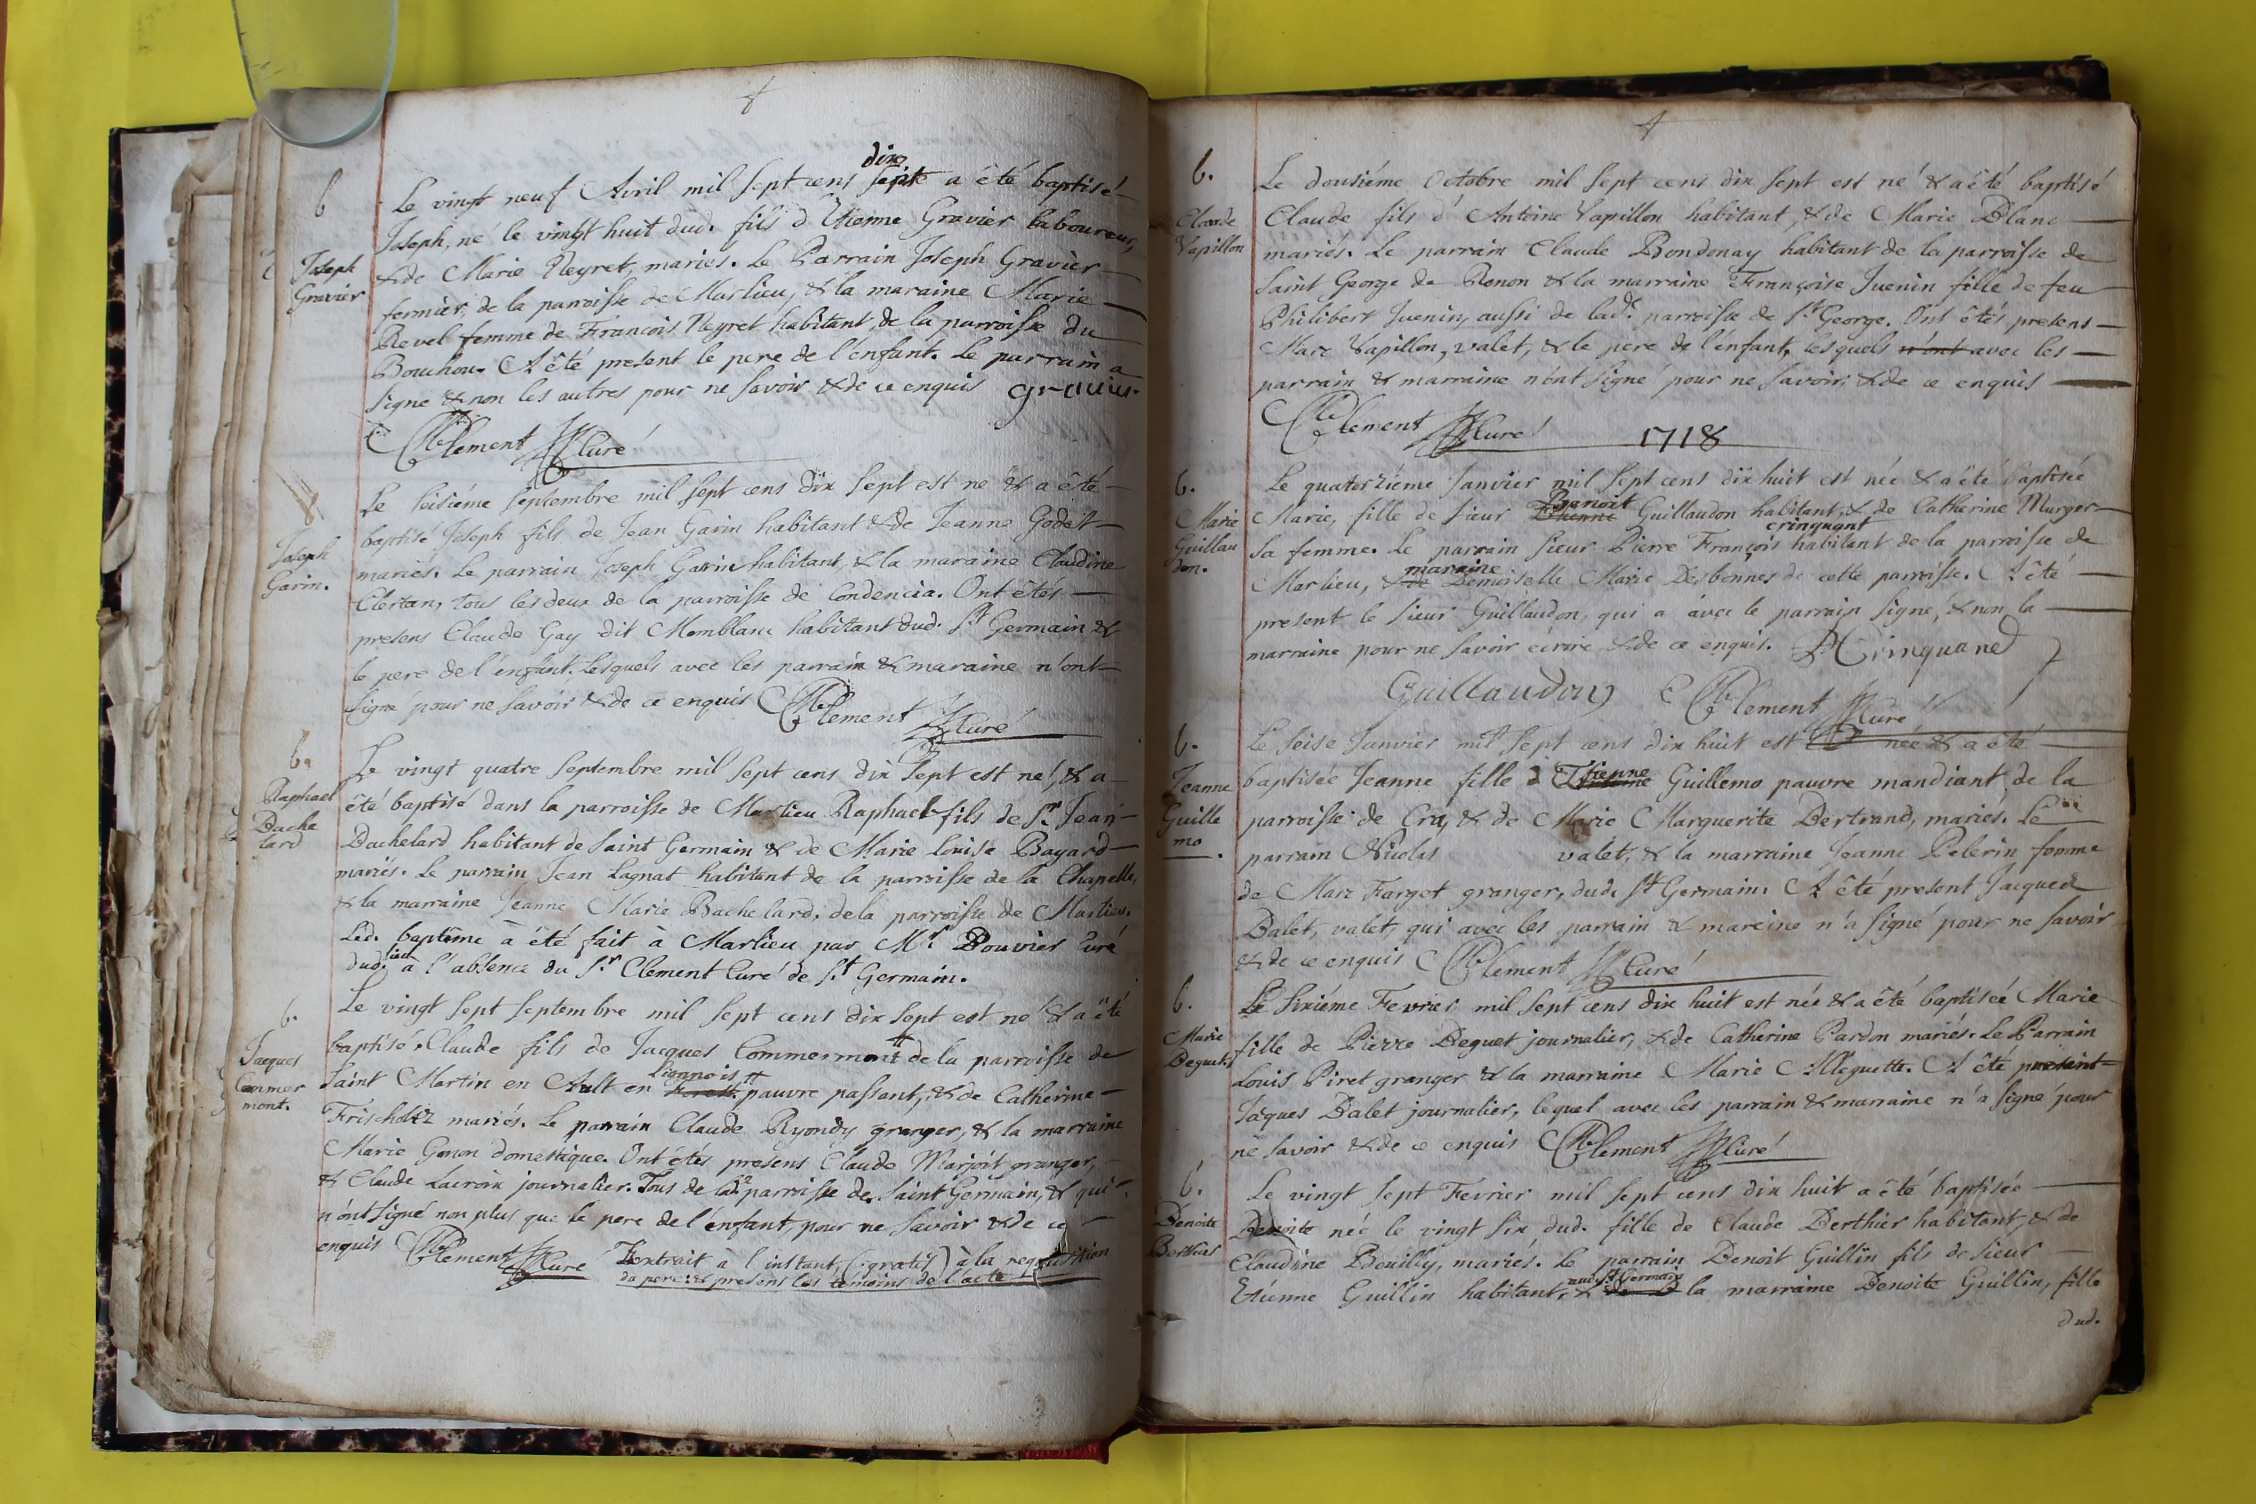 b
Joseph
Gravier
dix
Le vingt neuf Avril mil sept cens sept a êté baptisé
Joseph, né le vingt huit dud. fils d'Etienne Gravier laboureur,
& de Marie Neyret, mariés. Le Parrain Joseph Gravier
fermier, de la parroisse de Marlieu, & la maraine Marie
Revel femme de François Neyret habitant, de la parroisse du
Bouchou. A êté present le pere de l'enfant. Le parrain a
signe & non les autres pour ne savoir & de ce enquis gravier.
Clement Curé
Joseph
Garin.
Le seisiéme septembre mil sept cens dix sept est né & a êté
baptisé Joseph fils de Jean Garin habitant & de Jeanne Godet
mariés. Le parrain Joseph Garin habitant, & la maraine Claudine
Clertan, tous les deux de la parroisse de Condencia. Ont êtés
presens Claude Gay dit Momblanc habitant dud. St Germain &
le pere de l'enfant. Lesquels avec les parrain & maraine n'ont
signé pour ne savoir & de ce enquis Clement
Curé
b.
Raphael
Bache
lard
Le vingt quatre septembre mil sept cens dix sept est né, & a
êté baptisé dans la parroisse de Marlieu Raphael fils de Sr. Jean
Bachelard habitant de Saint Germain & de Marie Louise Bayard
mariés. Le parrain Jean Lagnat habitant de la parroisse de la Chapelle,
& la marraine Jeanne Marie Bachelard, de la parroisse de Marlieu.
Led. baptême à êté fait à Marlieu par Mr. Bouvier Curé
dud. lieu à l'absence du Sr. Clement Curé de St Germain.
b.
Jacques
Commer
mont.
Le vingt sept septembre mil sept cens dix sept est né & a êté
baptisé Claude fils de Jacques Commermont de la parroisse de
lionnois
Saint Martin en Ault en pauvre passant, & de Catherine
Frischolez mariés. Le parrain Claude Ryondy granger, & la marraine
Marie Gonon domestique. Ont êtés presens Claude Marjoit granger,
& Claude Lacroix journalier. Tous de lade parroisse de Saint Germain, & qui
n'ont signé non plus que le pere de l'enfant pour ne savoir & de ce
enquis Clement Curé Extrait à l'instant, (gratis) à la requisition
du pere: & presens les temoins de l'acte
b.
Claude
Papillon
Le dousiéme Octobre mil sept cens dix sept est né & a êté baptisé
Claude fils d'Antoine Papillon habitant, & de Marie Blanc
mariés. Le parrain Claude Bondonay habitant de la parroisse de
Saint George de Renon & la marraine Françoise Juenin fille de feu
Philibert Juenin, aussi de lade. parroisse de St George. Ont êtés presens
Marc Papillon, valet, & le pere de l'enfant, lesquels n'ont avec les
parrain & marraine n'ont signé pour ne savoir, & de ce enquis
Clement Curé
1718
b.
Marie
Guillau
don.
Le quatorziéme Janvier mil sept cens dix huit est née & a êté baptisée
Benoit
Marie, fille de sieur Etienne Guillaudon habitant, & de Catherine Murger
crinquant
sa femme. Le parrain sieur Pierre François habitant de la parroisse de
maraine
Marlieu, & de Demoiselle Marie Desbonnes de cette parroisse. A êté
present le sieur Guillaudon, qui a avec le parrain signé, & non la
marraine pour ne savoir ecrire & de ce enquis. Crinquand
Guillaudon Clement Curé
b.
Jeanne
Guille
mo
Le seise Janvier mil sept cens dix huit est née & a êté
baptisée Jeanne fille d'Etienne Guillemo pauvre mandiant de la
parroisse de Cra, & de Marie Marguerite Bertrand, mariés. Le
parrain Nicolas valet, & la marraine Jeanne Pelerin femme
de Marc Farget granger, dud. St Germain. A êté present Jacques
Balet, valet, qui avec les parrain & mareine n'a signé pour ne savoir
& de ce enquis Clement Curé
b.
Marie
Deguet,
Le sixiéme Fevrier mil sept cens dix huit est née & a êté baptiseé Marie
fille de Pierre Deguet journalier, & de Catherine Pardon mariés. Le Parrain
Louis Piret granger & la marraine Marie Alleguette. A êté present
Jaques Balet journalier, lequel avec les parrain & marraine n'a signé pour
ne savoir & de ce enquis Clement Curé
b.
Benoite
Berthier
Le vingt sept Fevrier mil sept cens dix huit a êté baptisée
Benoite née le vingt six dud. fille de Claude Berthier habitant, & de
Claudine Bouilly, mariés. Le parrain Benoit Guillin fils de sieur
aud. St Germain
Etienne Guillin habitant, & la marraine Benoite Guillin, fille
dud.